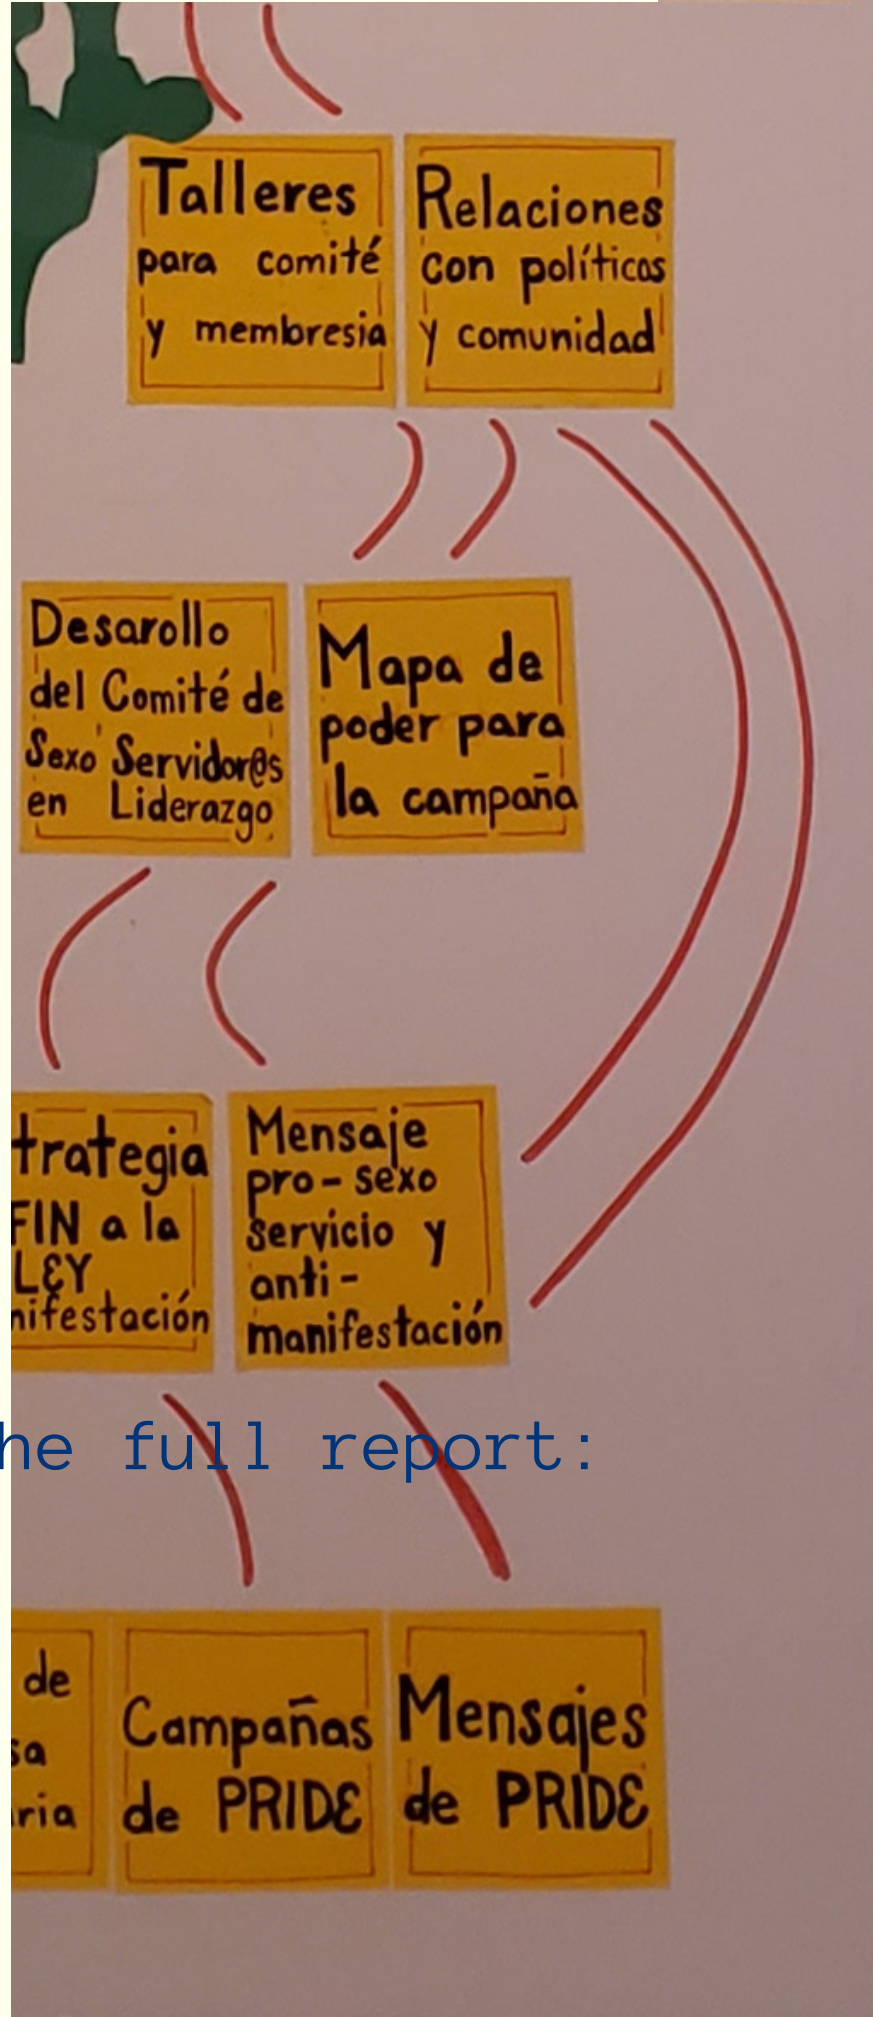 Talleres
para comité
y membresia
Relaciones
con políticos
y comunidad
Desarollo
del Comité de
Sexo Servidor@s
en Liderazgo
Mapa de
poder para
la campaña
trategia
FIN a la
LEY
nifestación
Mensaje
pro-sexo
servicio y
anti-
manifestación
he full report:
de
sa
ria
Campañas
de PRIDE
Mensajes
de PRIDE